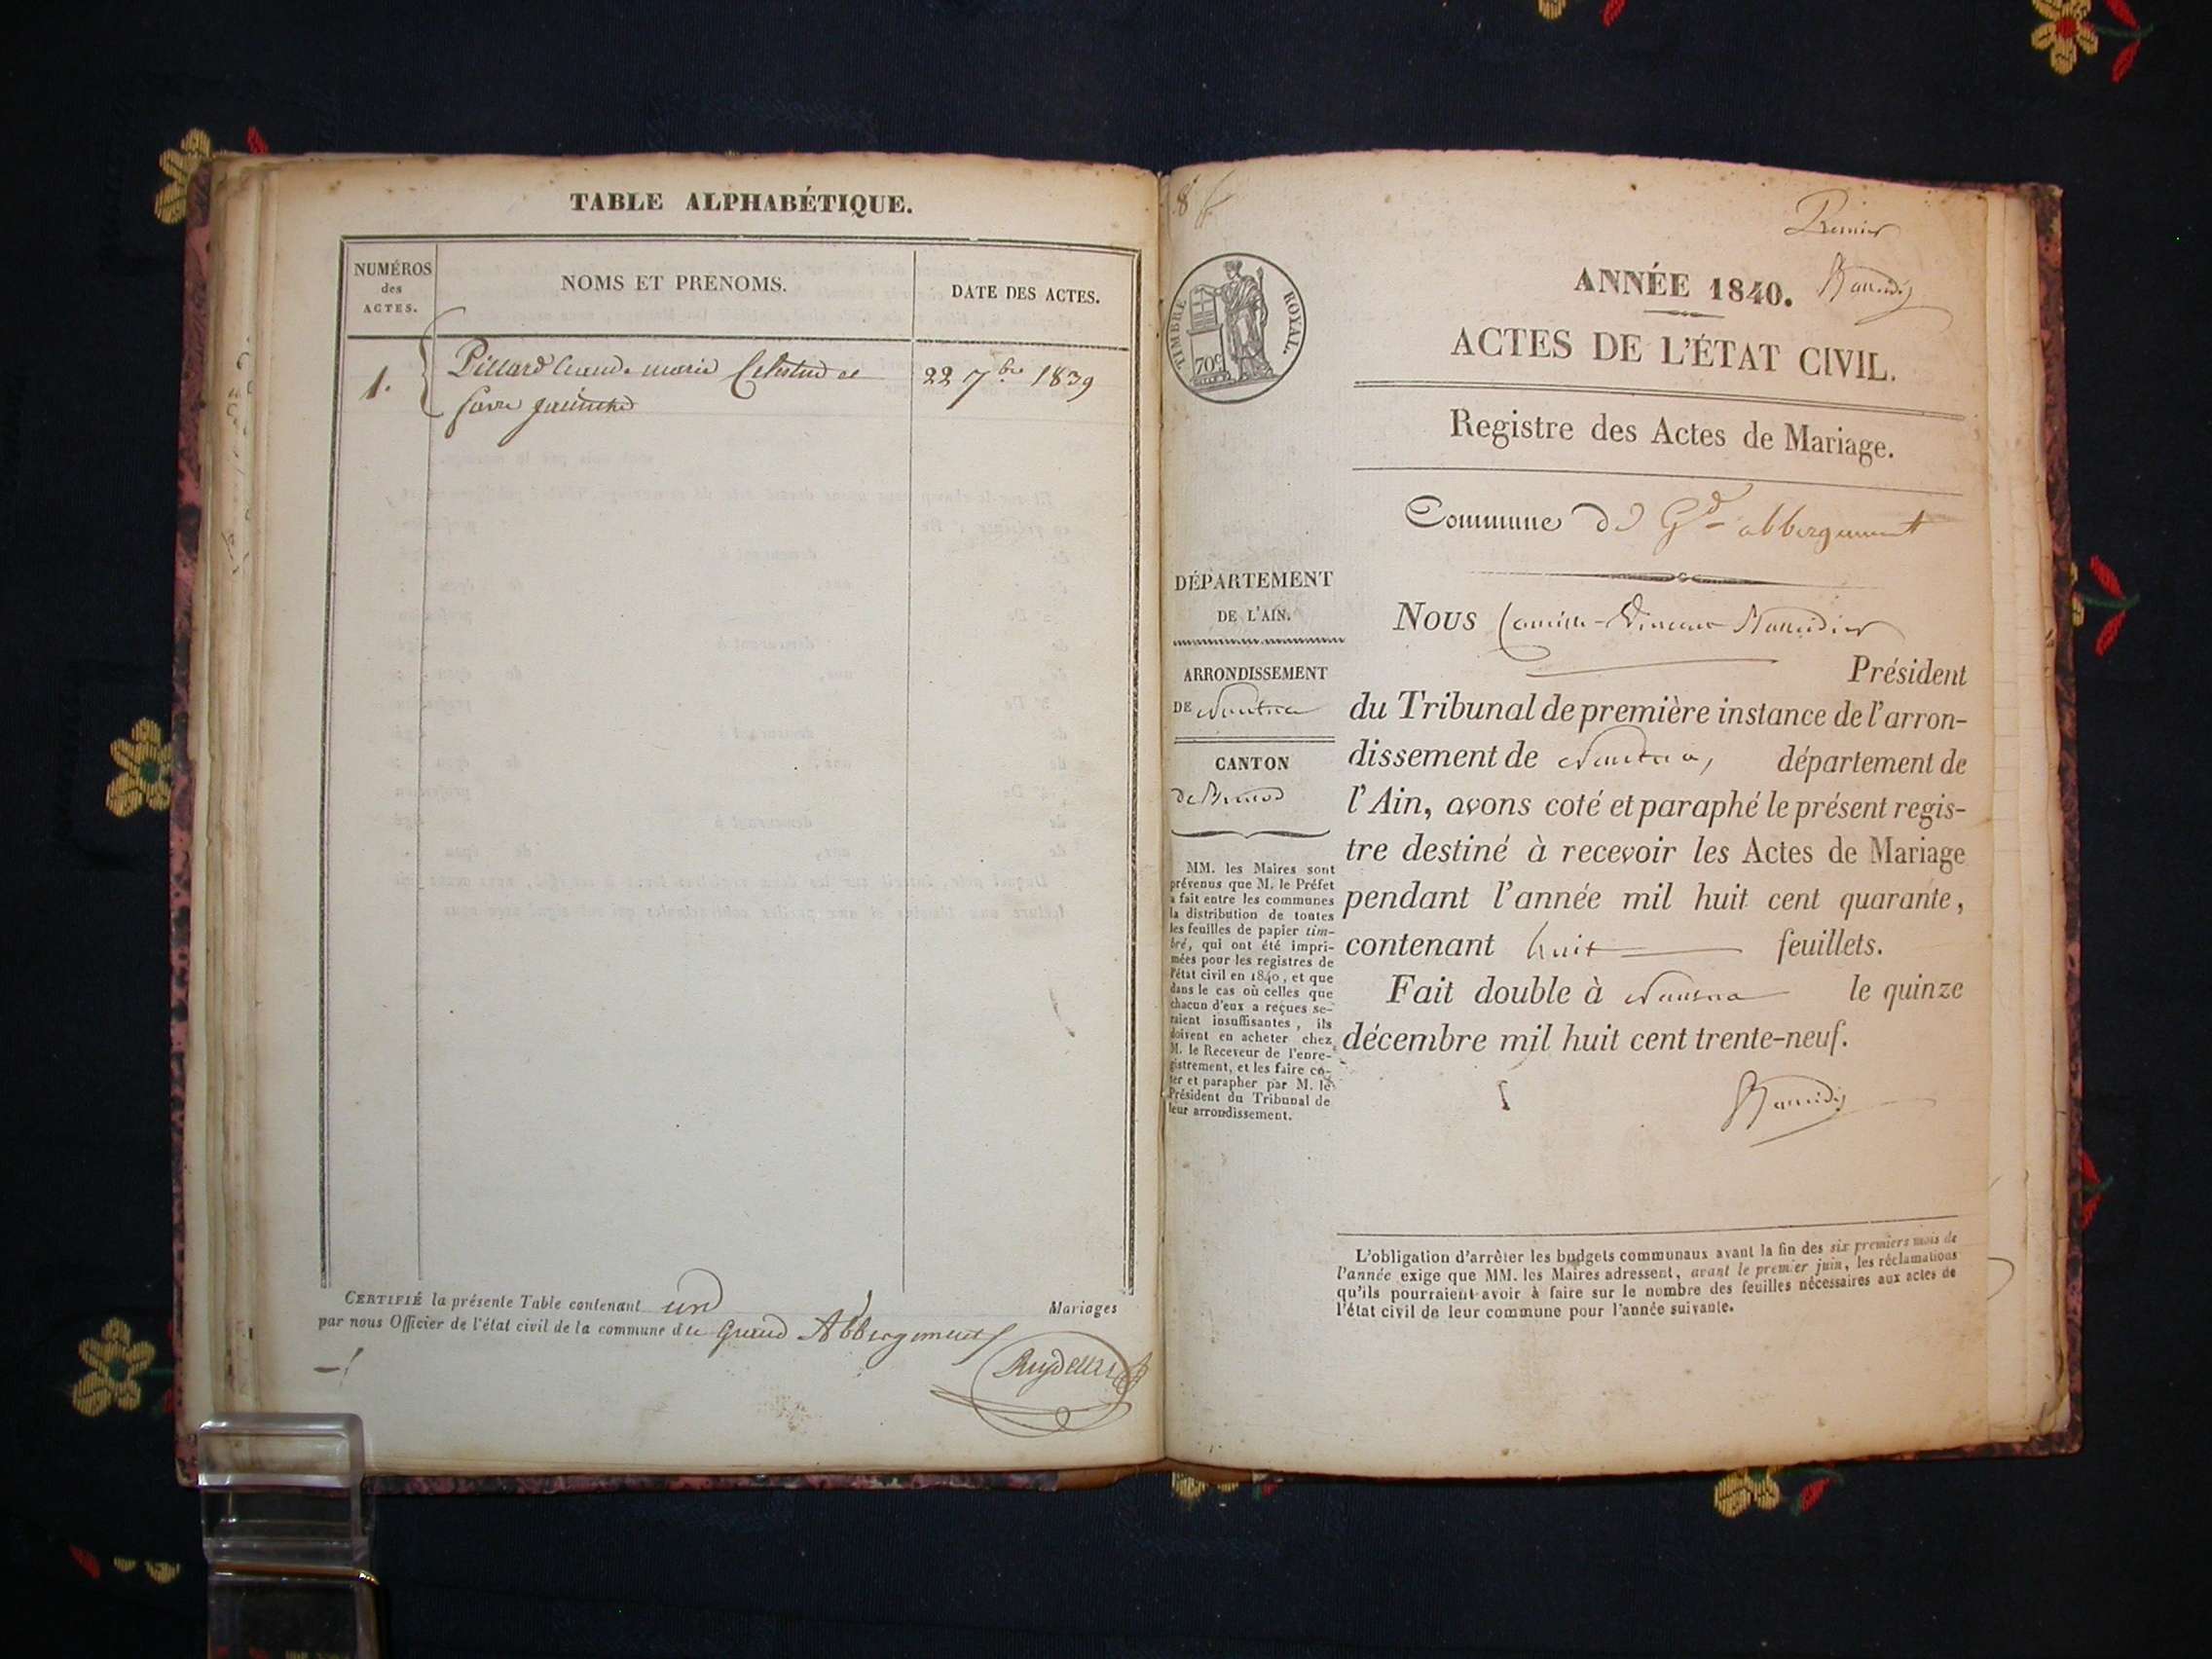 TABLE ALPHABÉTIQUE.
NUMÉROS
des
ACTES.
NOMS ET PRENOMS.
DATE DES ACTES.
1.
Pillard marie et
favre
22 7bre 1839
CERTIFIÉ la présente Table contenant un Mariages
par nous Officier de l'état civil de la commune du Grand Abbergement
Premier
TIMBRE ROYAL.
70c
ANNÉE 1840.
ACTES DE L'ÉTAT CIVIL.
Registre des Actes de Mariage.
Commune de Gd abbergement
DÉPARTEMENT
DE L'AIN.
ARRONDISSEMENT
DE Nantua
CANTON
de Brenod
MM. les Maires sont
prévenus que M. le Préfet
a fait entre les communes
la distribution de toutes
les feuilles de papier tim-
bré, qui ont été impri-
mées pour les registres de
l'état civil en 1840, et que
dans le cas où celles que
chacun d'eux a reçues se-
raient insuffisantes, ils
doivent en acheter chez
M. le Receveur de l'enre-
gistrement, et les faire co-
ter et parapher par M. le
Président du Tribunal de
leur arrondissement.
Nous Camille-Vincent
Président
du Tribunal de première instance de l'arron-
dissement de Nantua, département de
l'Ain, avons coté et paraphé le présent regis-
tre destiné à recevoir les Actes de Mariage
pendant l'année mil huit cent quarante,
contenant huit feuillets.
Fait double à Nantua le quinze
décembre mil huit cent trente-neuf.
L'obligation d'arrêter les budgets communaux avant la fin des six premiers mois de
l'année exige que MM. les Maires adressent, avant le premier juin, les réclamations
qu'ils pourraient avoir à faire sur le nombre des feuilles nécessaires aux actes de
l'état civil de leur commune pour l'année suivante.